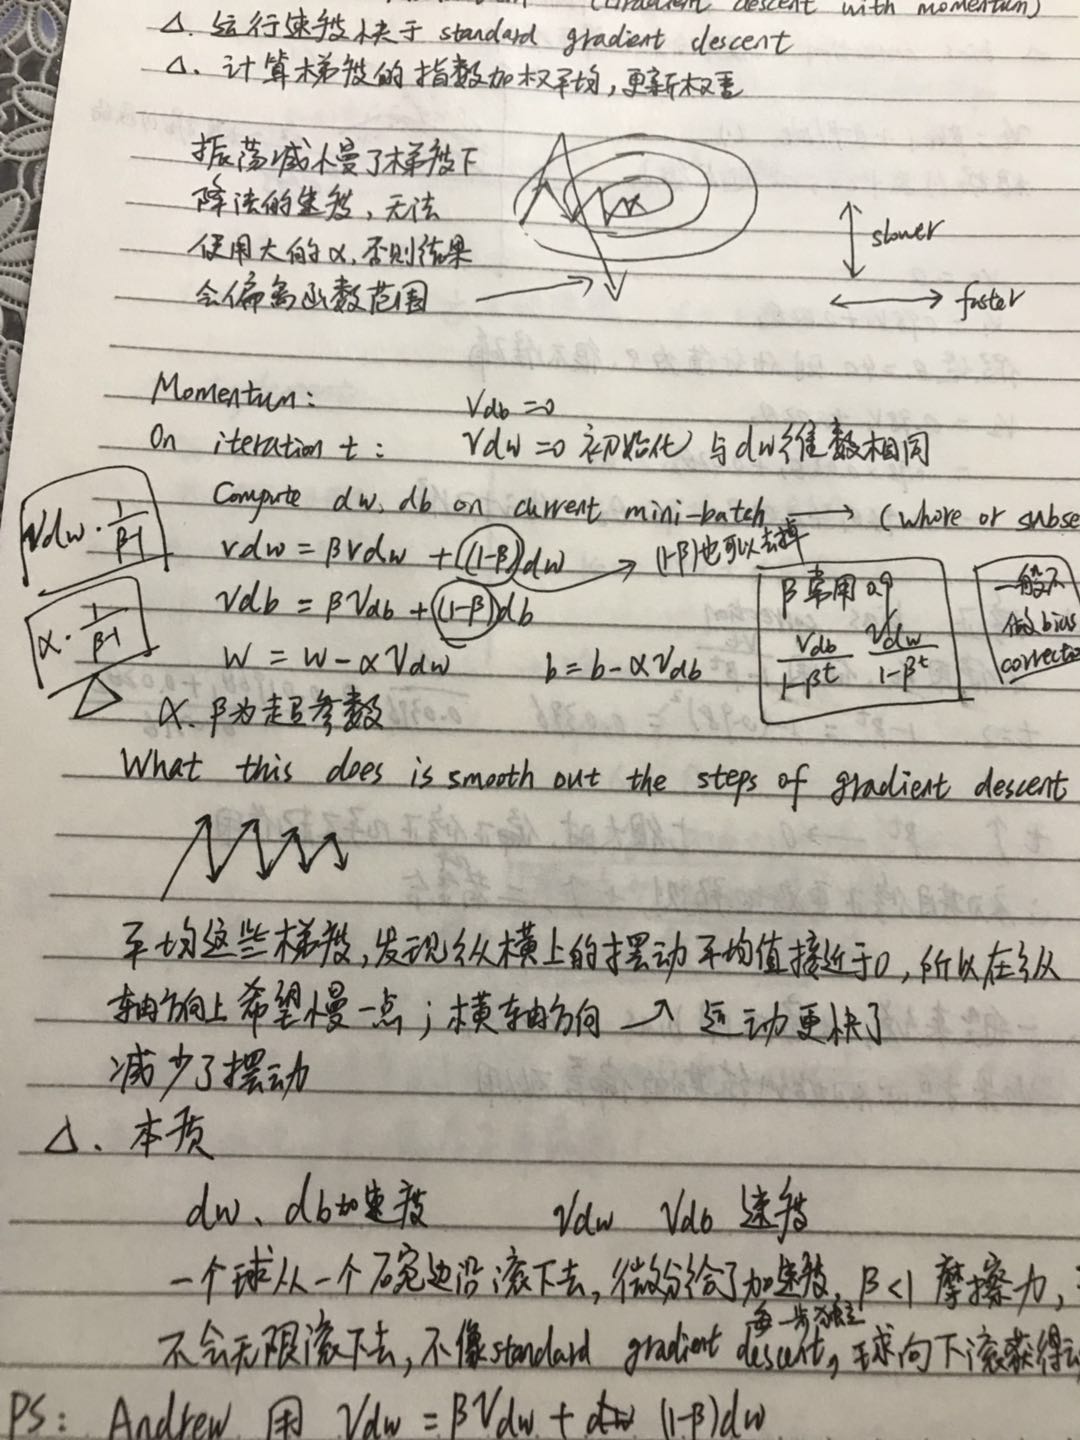 (Gradient descent with momentum)
△. 运行速度快于 standard gradient descent
△. 计算梯度的指数加权平均,更新权重
振荡减慢了梯度下
降法的速度,无法
使用大的α,否则结果
会偏离函数范围
slower
faster
Momentum: Vdb=0
On iteration t: Vdw=0 初始化 与dw维数相同
Compute dw, db on current mini-batch → (whore or subse
Vdw = βVdw + ((1-β)dw) → (1-β)也可以去掉
Vdb = βVdb + (1-β)db
W = W-αVdw b=b-αVdb
Vdw · 1/β-1
α · 1/β-1
β常用 0.9
Vdb/1-β^t Vdw/1-β^t
一般不
做bias
correctio
α、β为超参数
What this does is smooth out the steps of gradient descent
平均这些梯度,发现纵横上的摆动平均值接近于0,所以在纵
轴方向上希望慢一点;横轴方向 → 运动更快了
减少了摆动
△. 本质
dw、db加速度 Vdw Vdb 速度
一个球从一个碗边沿滚下去,微分给了加速度,β<1 摩擦力,
每一步独立
不会无限滚下去,不像standard gradient descent,球向下滚获得
PS: Andrew 用 Vdw = βVdw + dw (1-β)dw